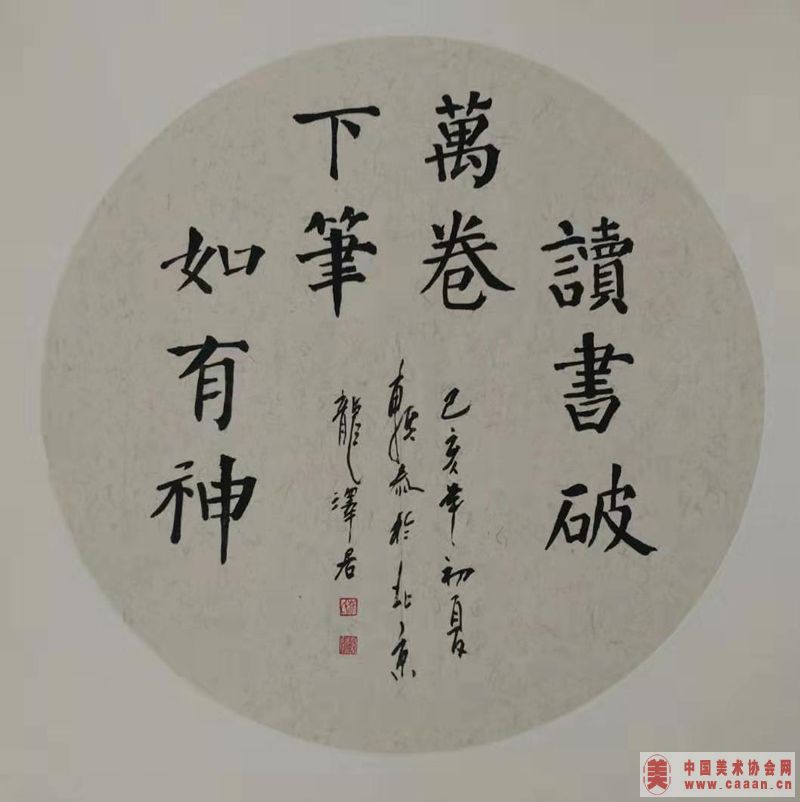 讀書破
萬卷
下筆
如有神
己亥年初夏
於北京
龍澤居
美
中国美术协会网
www.caaan.cn